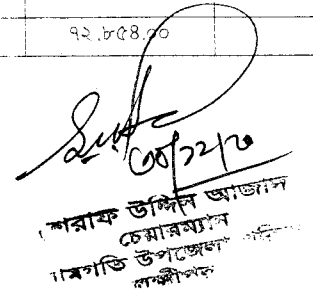 ৭২,৮৫৪.০০
শরাফ উদ্দিন আজাদ
চেয়ারম্যান
রামগতি উপজেলা পরিষদ
লক্ষ্মীপুর